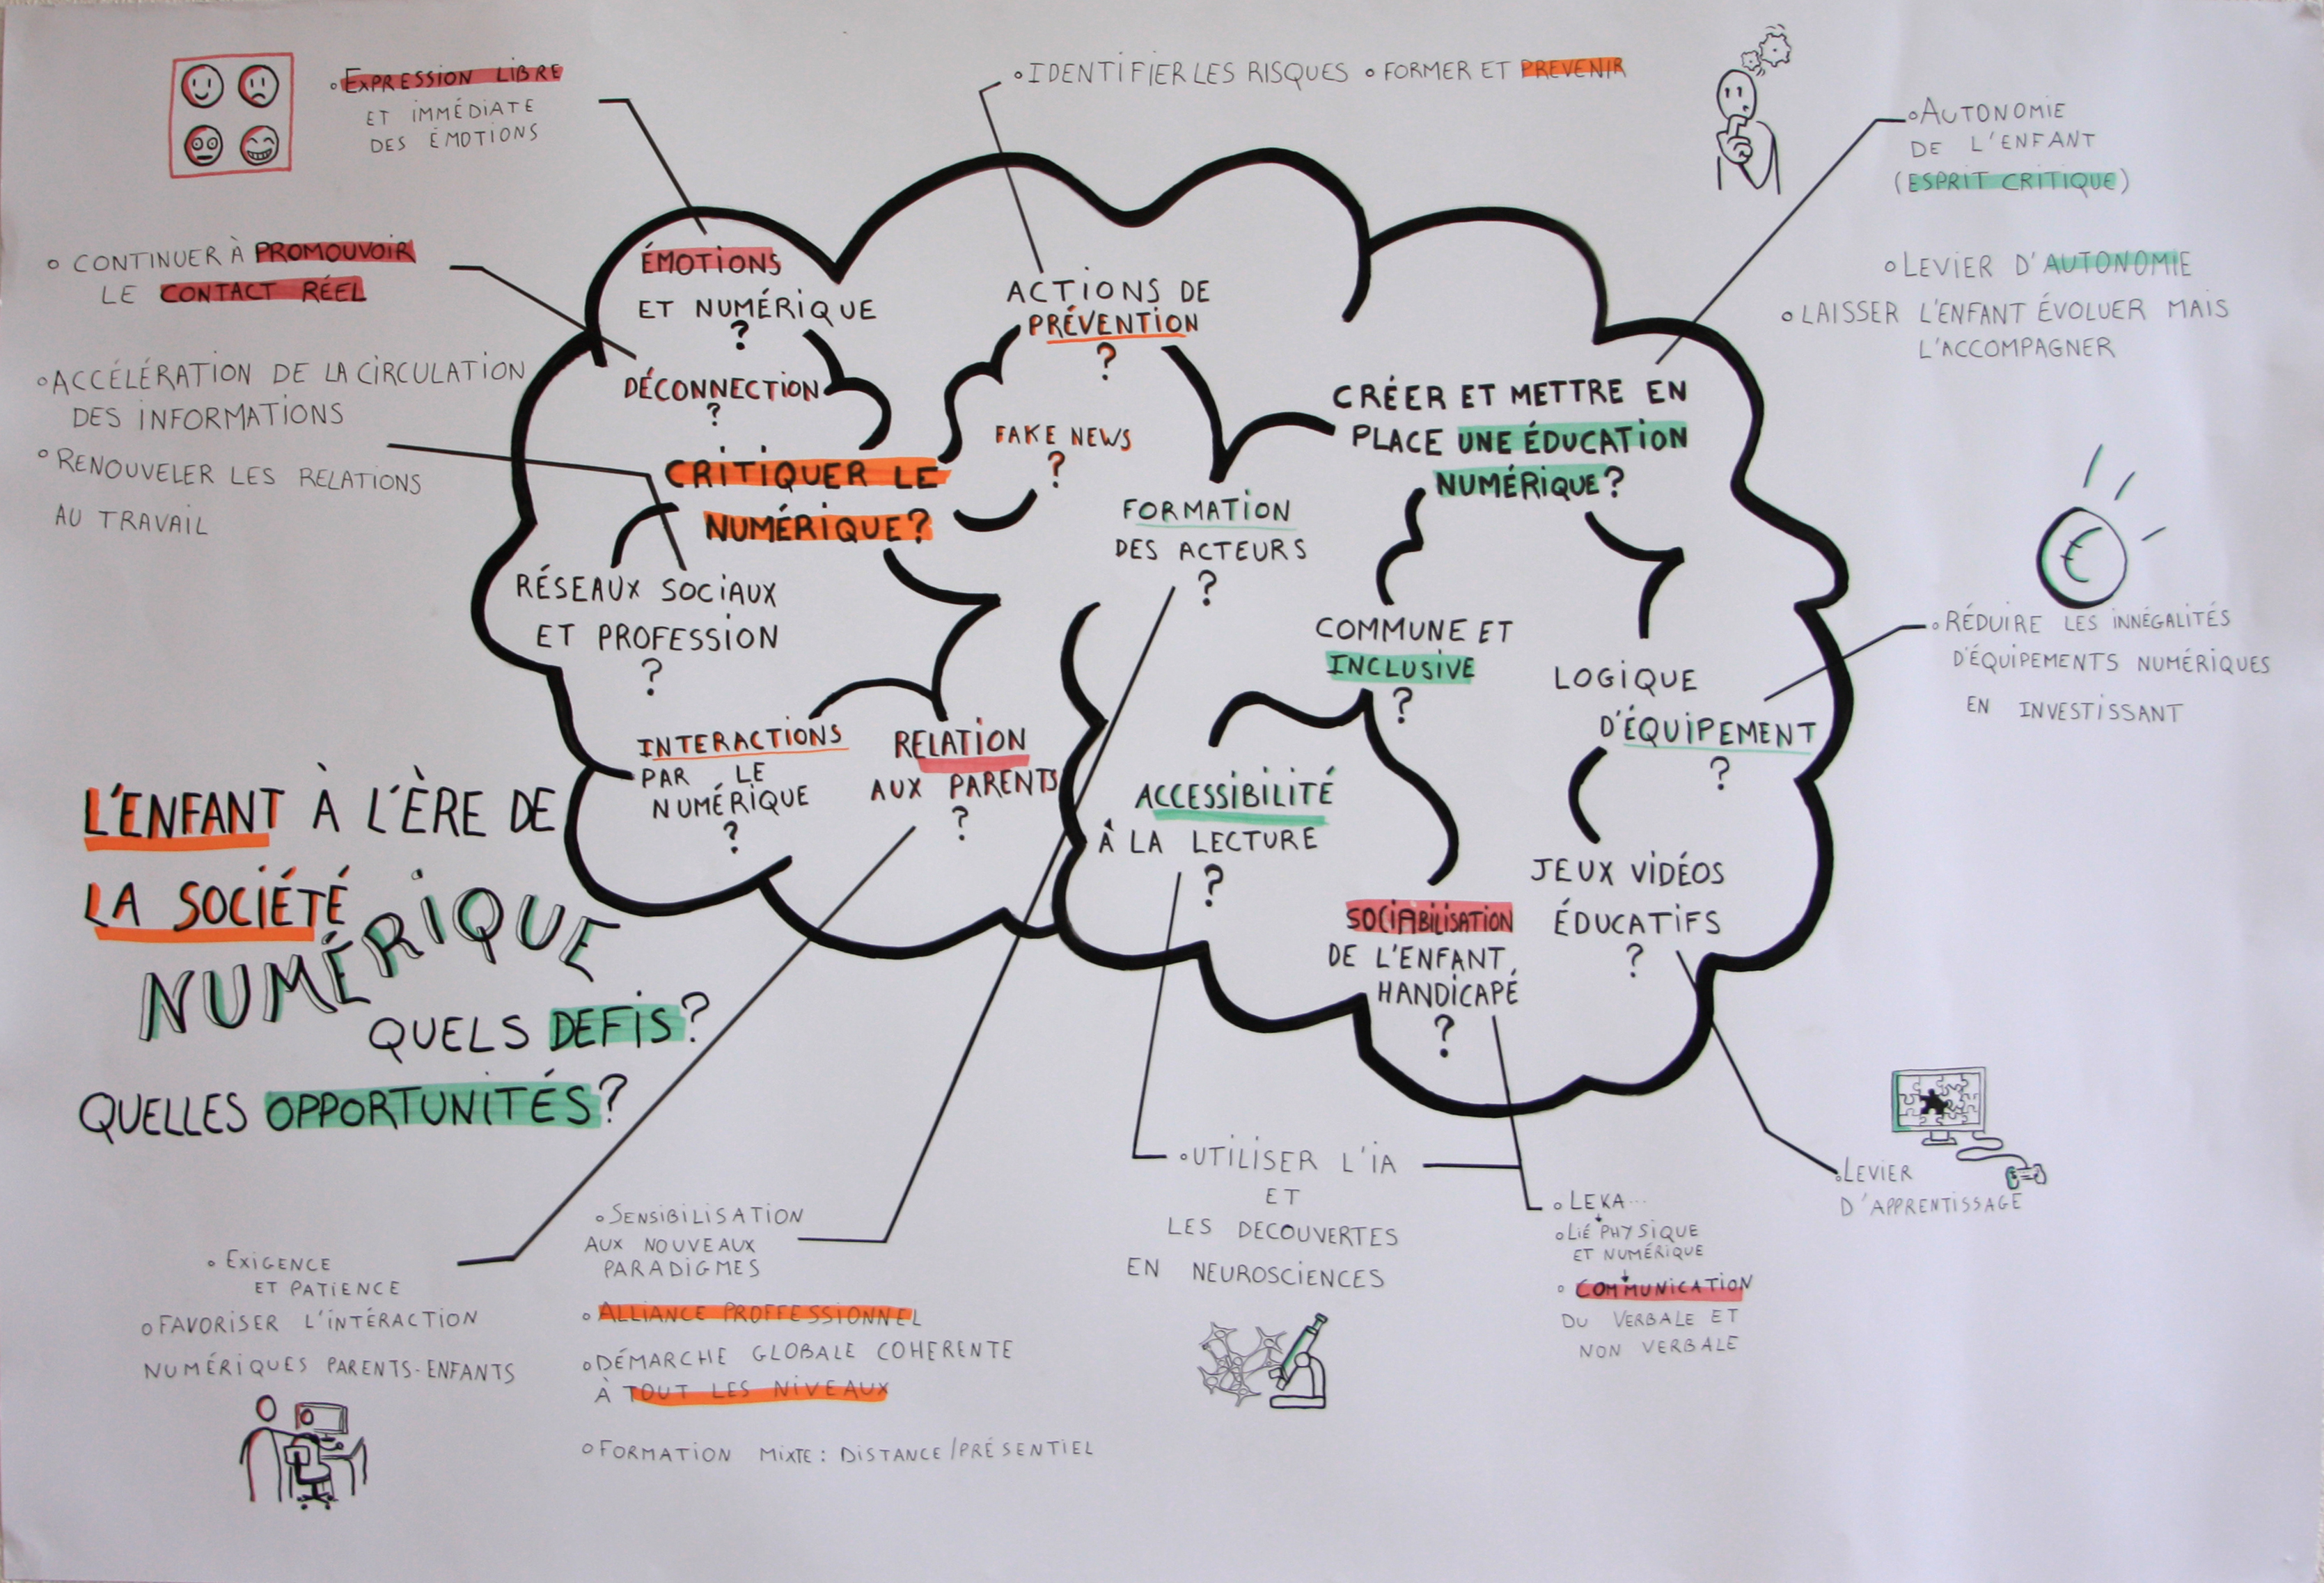 L'ENFANT À L'ÈRE DE
LA SOCIÉTÉ
NUMÉRIQUE
QUELS DEFIS?
QUELLES OPPORTUNITÉS?
° EXPRESSION LIBRE
ET IMMÉDIATE
DES ÉMOTIONS
° CONTINUER À PROMOUVOIR
LE CONTACT RÉEL
° ACCÉLÉRATION DE LA CIRCULATION
DES INFORMATIONS
° RENOUVELER LES RELATIONS
AU TRAVAIL
° IDENTIFIER LES RISQUES ° FORMER ET PREVENIR
° AUTONOMIE
DE L'ENFANT
(ESPRIT CRITIQUE)
° LEVIER D'AUTONOMIE
° LAISSER L'ENFANT ÉVOLUER MAIS
L'ACCOMPAGNER
€
° RÉDUIRE LES INNÉGALITÉS
D'ÉQUIPEMENTS NUMÉRIQUES
EN INVESTISSANT
ÉMOTIONS
ET NUMÉRIQUE
?
DÉCONNECTION
?
CRITIQUER LE
NUMÉRIQUE?
RÉSEAUX SOCIAUX
ET PROFESSION
?
INTERACTIONS
PAR LE
NUMÉRIQUE
?
RELATION
AUX PARENTS
?
ACTIONS DE
PRÉVENTION
?
FAKE NEWS
?
FORMATION
DES ACTEURS
?
CRÉER ET METTRE EN
PLACE UNE ÉDUCATION
NUMÉRIQUE?
COMMUNE ET
INCLUSIVE
?
LOGIQUE
D'ÉQUIPEMENT
?
ACCESSIBILITÉ
À LA LECTURE
?
SOCIABILISATION
DE L'ENFANT
HANDICAPÉ
?
JEUX VIDÉOS
ÉDUCATIFS
?
° EXIGENCE
ET PATIENCE
° FAVORISER L'INTÉRACTION
NUMÉRIQUES PARENTS-ENFANTS
° SENSIBILISATION
AUX NOUVEAUX
PARADIGMES
° ALLIANCE PROFFESSIONNEL
° DÉMARCHE GLOBALE COHERENTE
À TOUT LES NIVEAUX
° FORMATION MIXTE : DISTANCE/PRÉSENTIEL
° UTILISER L'IA
ET
LES DECOUVERTES
EN NEUROSCIENCES
° LEKA...
° LIÉ PHYSIQUE
ET NUMÉRIQUE
° COMMUNICATION
DU VERBALE ET
NON VERBALE
° LEVIER
D'APPRENTISSAGE